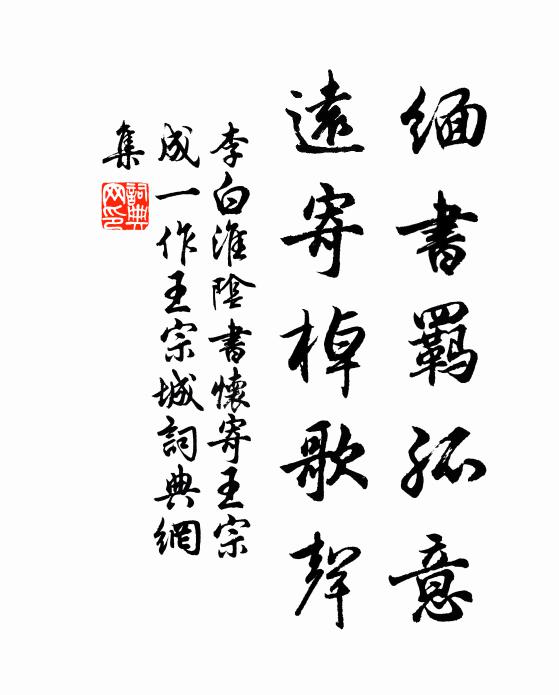 緬書羈孤意
遠寄棹歌聲
李白淮陰書懷寄王宗
成一作王宗城詞典網
集
詞典
网印